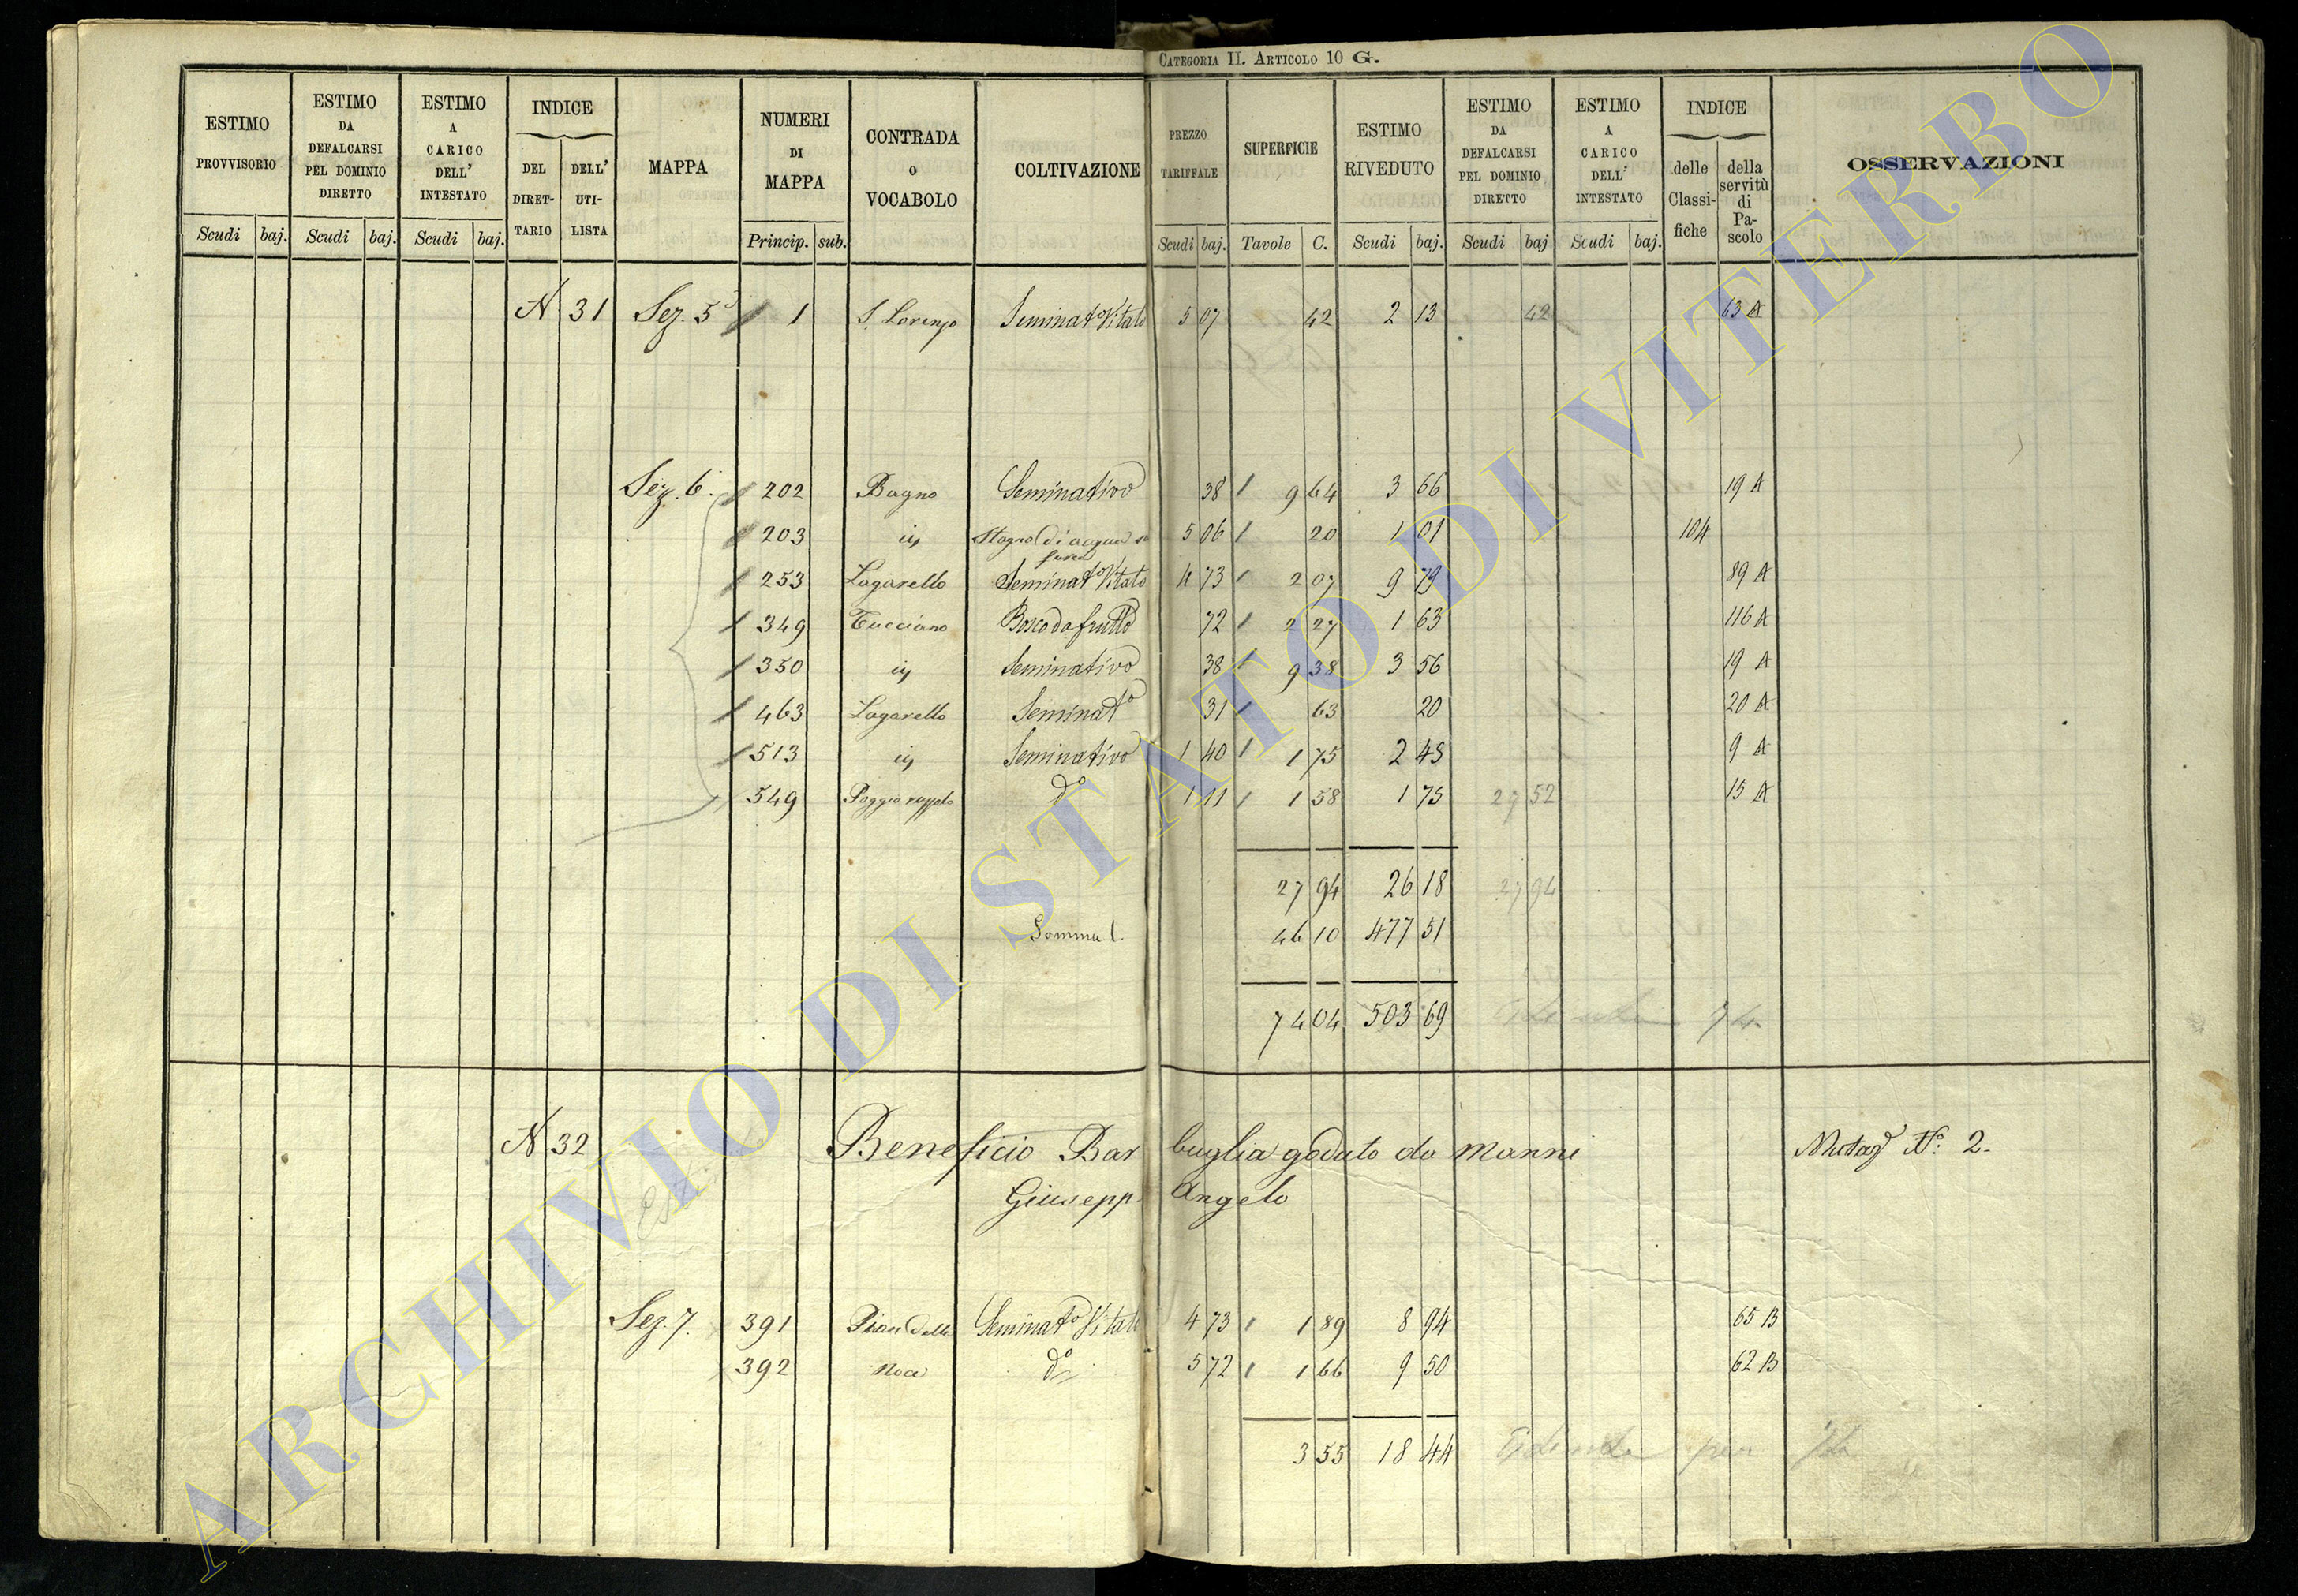 CATEGORIA II. ARTICOLO 10 G.
ESTIMO PROVVISORIO Scudi baj.
ESTIMO DA DEFALCARSI PEL DOMINIO DIRETTO Scudi baj.
ESTIMO A CARICO DELL' INTESTATO Scudi baj.
INDICE DEL DIRET-TARIO DELL' UTI-LISTA
MAPPA
NUMERI DI MAPPA Princip. sub.
CONTRADA o VOCABOLO
COLTIVAZIONE
PREZZO TARIFFALE Scudi baj.
SUPERFICIE Tavole C.
ESTIMO RIVEDUTO Scudi baj.
ESTIMO DA DEFALCARSI PEL DOMINIO DIRETTO Scudi baj
ESTIMO A CARICO DELL' INTESTATO Scudi baj.
INDICE delle Classi-fiche della servitù di Pa-scolo
OSSERVAZIONI
N 31 Sez. 5ª 1 S. Lorenzo Seminatº Vitato 5 07 42 2 13 42 63 A
Sez. 6. 202 Bagno Seminativo 38 9 64 3 66 19 A
203 id Stagno di acqua 5 06 20 1 01 104
253 Lagarello Seminatº Vitato 4 73 2 07 9 79 89 A
349 Tucciano Bosco da frutto 72 2 27 1 63 116 A
350 id Seminativo 38 9 38 3 56 19 A
463 Lagarello Seminatº 31 63 20 20 A
513 id Seminativo 1 40 1 75 2 45 9 A
549 dº 1 11 1 58 1 75 27 52 15 A
27 94 26 18 27 94
Somma 46 10 477 51
74 04 503 69 74
N 32 Beneficio Barbuglia goduto da Manni Nº 2.
Giusepp Angelo
Est.
Sez. 7. 391 Pian della Seminatº Vitato 4 73 1 89 8 94 65 B
392 Noce dº 5 72 1 66 9 50 62 B
3 55 18 44
ARCHIVIO DI STATO DI VITERBO